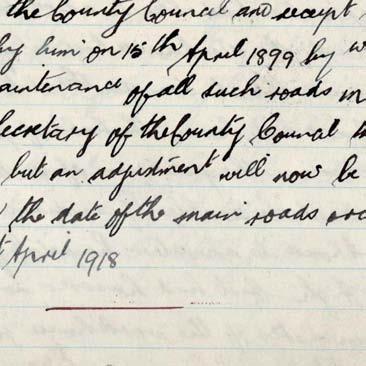 the County Council and receipt
by him on 15th April 1899 by
maintenance of all such roads in
Secretary of the County Council
but an adjustment will now be
the date of the main roads
April 1918